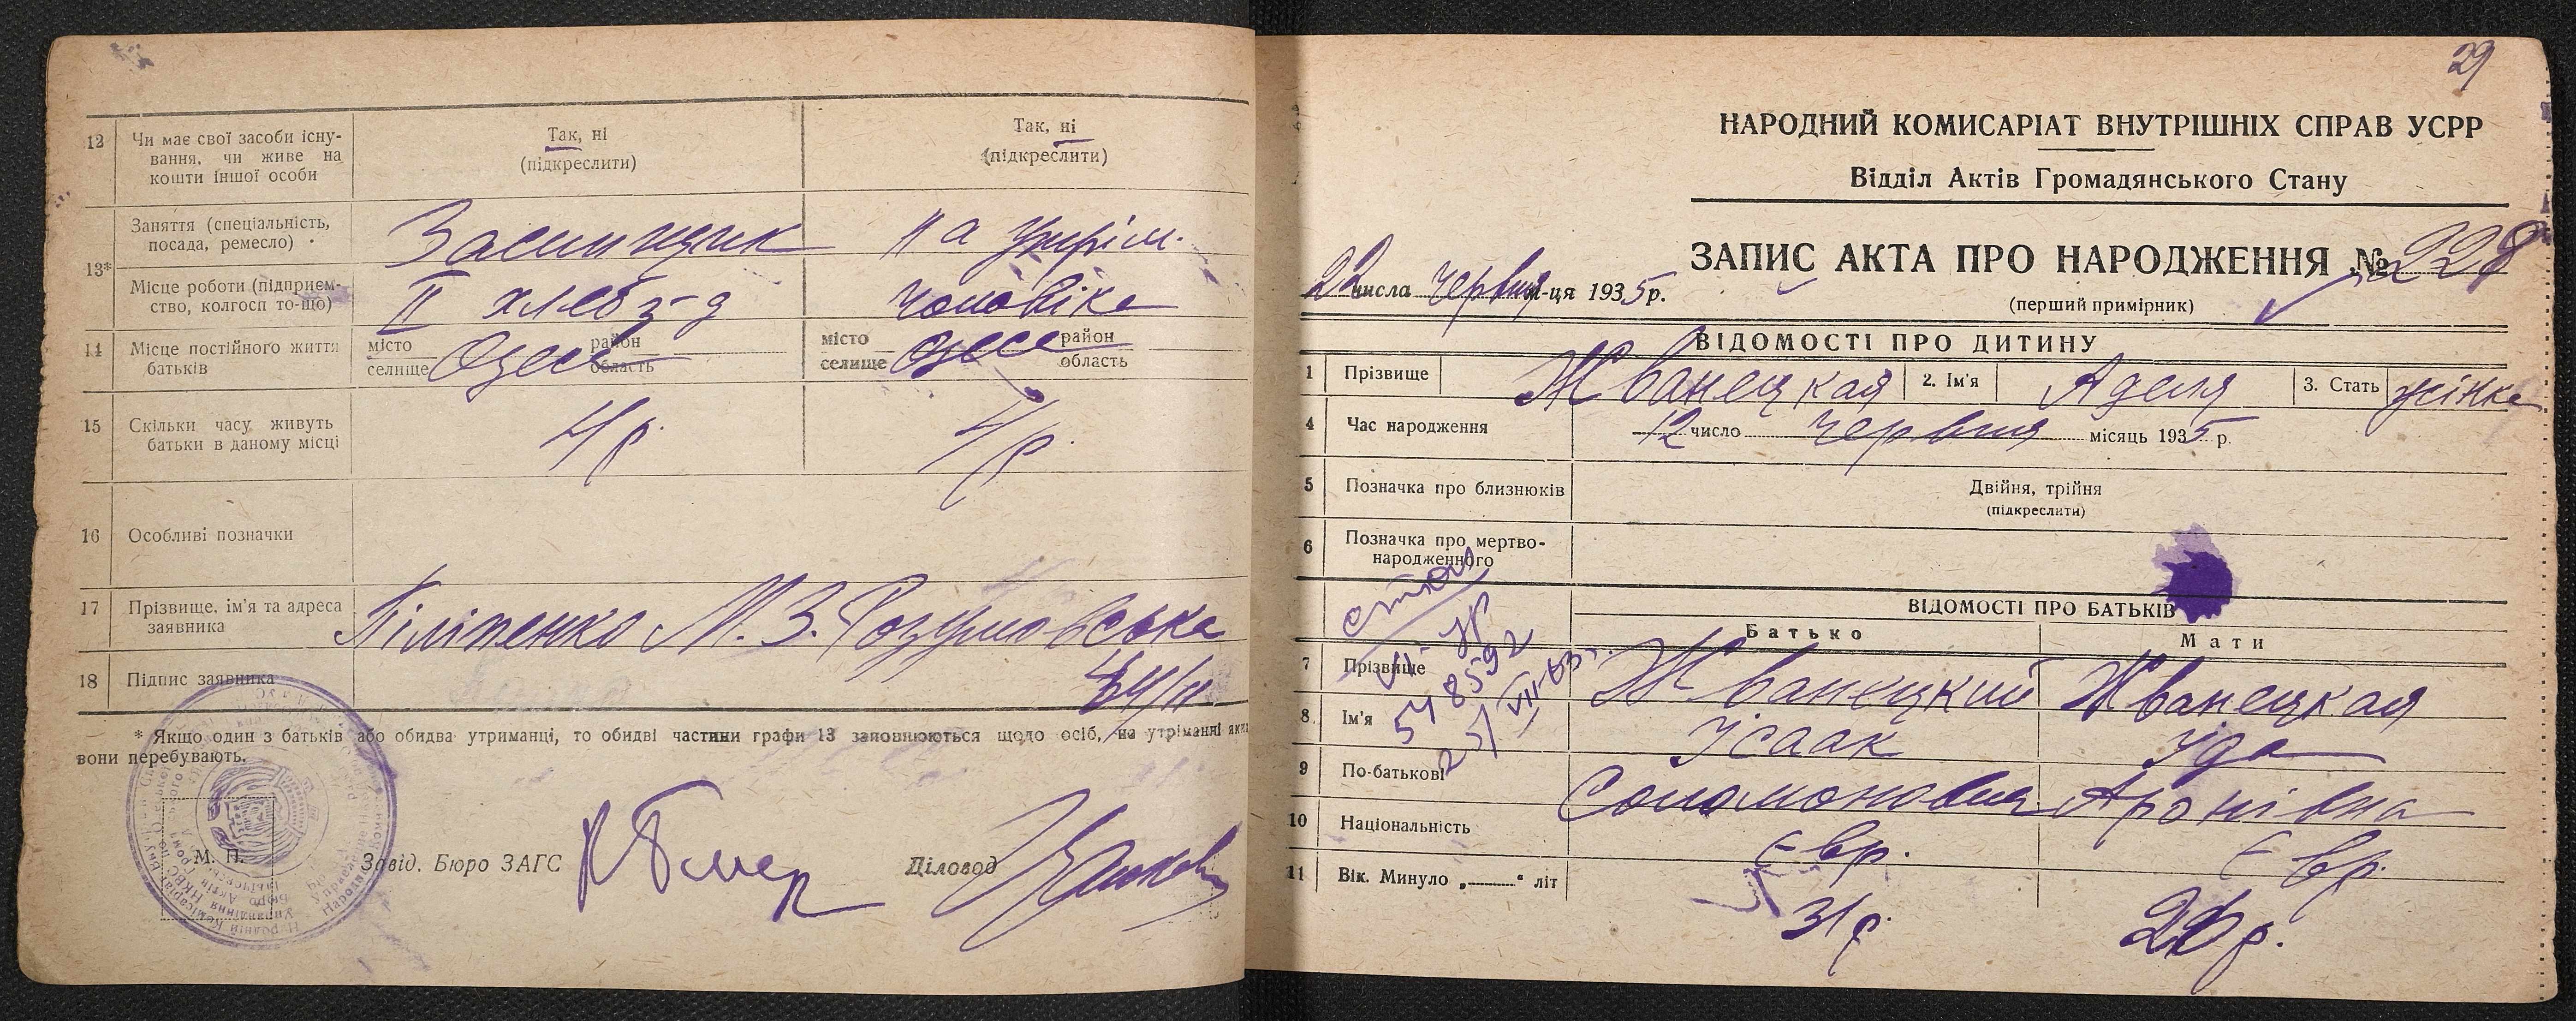 12 Чи має свої засоби існу-
вання, чи живе на
кошти іншої особи
Так, ні
(підкреслити)
Так, ні
(підкреслити)
13* Заняття (спеціальність,
посада, ремесло)
на утрім.
Місце роботи (підприєм-
ство, колгосп то-що)
II хлеб з-д
чоловіка
14 Місце постійного життя
батьків
місто
селище
Одеса
район
область
місто
селище
Одеса
район
область
15 Скільки часу живуть
батьки в даному місці
Н/р.
Н/р.
16 Особливі позначки
17 Прізвище, ім'я та адреса
заявника
Піліпенко М. З. Розумовська
18 Підпис заявника
* Якщо один з батьків або обидва утриманці, то обидві частини графи 13 заповнюються щодо осіб, на утриманні яких
вони перебувають.
М. П.
Завід. Бюро ЗАГС
Діловод
29
НАРОДНИЙ КОМИСАРІАТ ВНУТРІШНІХ СПРАВ УСРР
Відділ Актів Громадянського Стану
ЗАПИС АКТА ПРО НАРОДЖЕННЯ № 228
22 числа червня м-ця 1935 р.
(перший примірник)
ВІДОМОСТІ ПРО ДИТИНУ
1 Прізвище Жванецкая 2. Ім'я Аделя 3. Стать жінка
4 Час народження 12 число червня місяць 1935 р.
5 Позначка про близнюків
Двійня, трійня
(підкреслити)
6 Позначка про мертво-
народженного
ВІДОМОСТІ ПРО БАТЬКІВ
Батько Мати
7 Прізвище Жванецкий Жванецкая
8 Ім'я Ісаак Іда
9 По-батькові Соломонович Аронівна
10 Національність Євр. Євр.
11 Вік. Минуло „——“ літ 31 р. 26 р.
548592